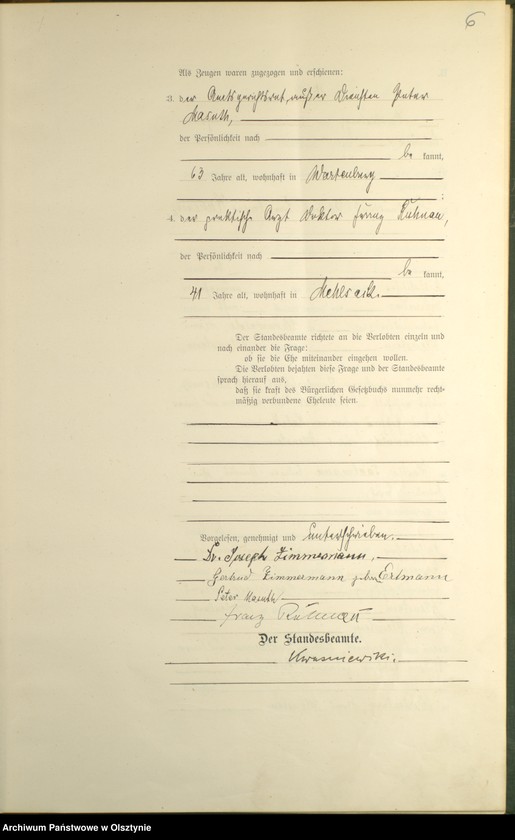 6
Als Zeugen waren zugezogen und erschienen:
3. der Amtsgerichtsrat außer Diensten Peter
Masuth,
der Persönlichkeit nach
be kannt,
63 Jahre alt, wohnhaft in Wartenburg
;
4. der praktische Arzt Doktor Franz Kuhnau,
der Persönlichkeit nach
be kannt,
41 Jahre alt, wohnhaft in Mehlsack.
Der Standesbeamte richtete an die Verlobten einzeln und
nach einander die Frage:
ob sie die Ehe miteinander eingehen wollen.
Die Verlobten bejahten diese Frage und der Standesbeamte
sprach hierauf aus,
daß sie kraft des Bürgerlichen Gesetzbuchs nunmehr recht-
mäßig verbundene Eheleute seien.
Vorgelesen, genehmigt und unterschrieben.
Dr. Joseph Zimmermann,
Gertrud Zimmermann geb. Ertmann
Peter Masuth
Franz
Der Standesbeamte.
Kwasniewski.
Archiwum Państwowe w Olsztynie